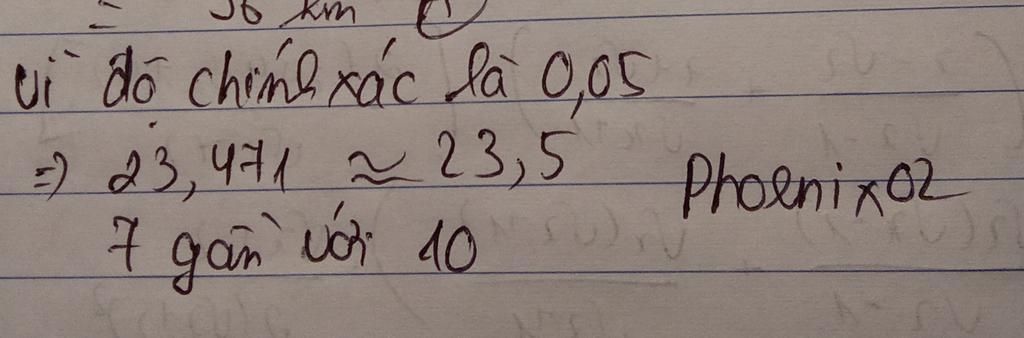 = 56 km
vì độ chính xác là 0,05
=> 23,471 ≈ 23,5
7 gần với 10
Phoenix02